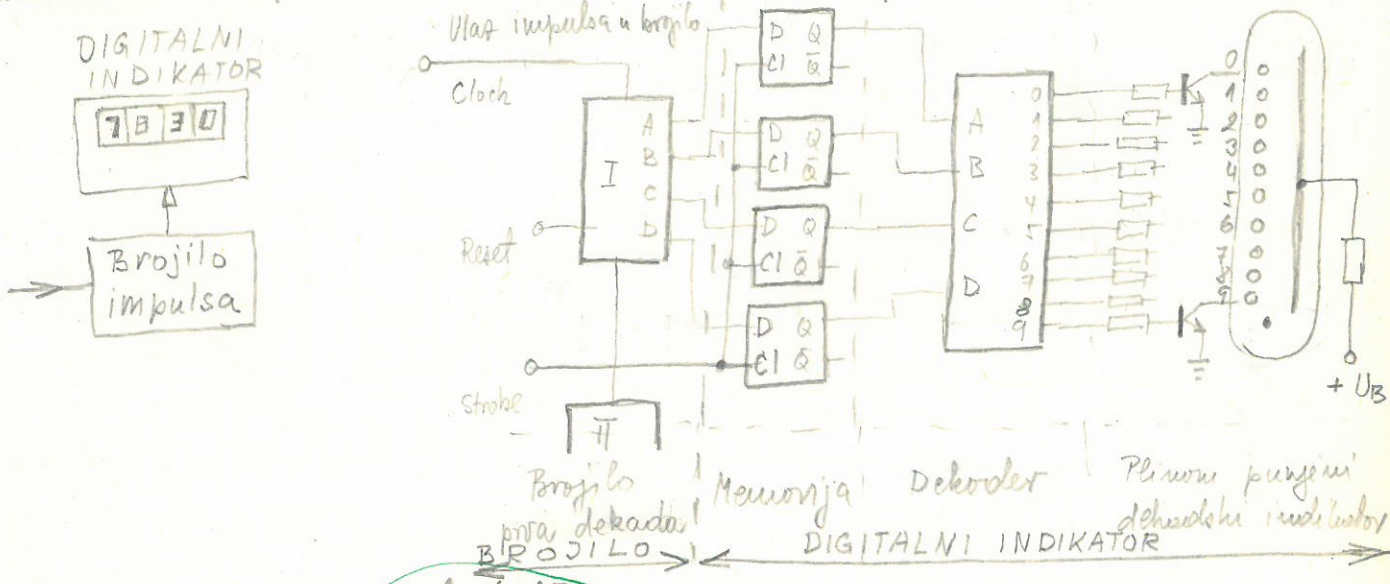 DIGITALNI
INDIKATOR
7830
Brojilo
impulsa
Ulaz impulsa u brojilo
Clock
Reset
Strobe
I
A
B
C
D
II
D Q
Cl Q̅
D Q
Cl Q̅
D Q
Cl Q̅
D Q
Cl Q̅
A
B
C
D
0
1
2
3
4
5
6
7
8
9
0
1
2
3
4
5
6
7
8
9
+ UB
Brojilo
prva dekada
Memorija
Dekoder
Plinom punjeni
dekadski indikator
BROJILO
DIGITALNI INDIKATOR